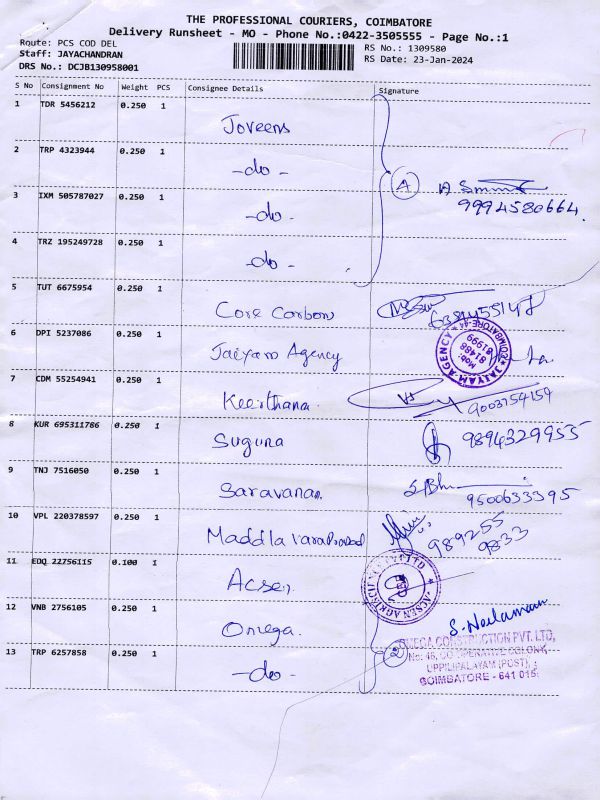 THE PROFESSIONAL COURIERS, COIMBATORE
Delivery Runsheet - MO - Phone No.:0422-3505555 - Page No.:1
Route: PCS COD DEL
RS No.: 1309580
Staff: JAYACHANDRAN
RS Date: 23-Jan-2024
DRS No.: DCJB130958001
S No Consignment No Weight PCS Consignee Details Signature
1 TDR 5456212 0.250 1 Joveens
2 TRP 4323944 0.250 1 -do-
A
9994580664
3 IXM 505787027 0.250 1 -do-
4 TRZ 195249728 0.250 1 -do-
5 TUT 6675954 0.250 1 Core Carbon
6 DPI 5237086 0.250 1 Jaiyam Agency
JAIYAM AGENCY COIMBATORE-44 Mob: 81488 61999
7 CDM 55254941 0.250 1 Keerthana
9003754154
8 KUR 695311786 0.250 1 Suguna
9894329955
9 TNJ 7516050 0.250 1 Saravanan
9500633395
10 VPL 220378597 0.250 1 Maddla Varaprasad
989255
9833
11 EDQ 22756115 0.100 1 Acsen
12 VNB 2756105 0.250 1 Omega
S. Neelamann
13 TRP 6257858 0.250 1 -do-
2
OMEGA CONSTRUCTION PVT. LTD,
No: 46, CO OPERATIVE COLONY,
UPPILIPALAYAM (POST),
COIMBATORE - 641 015.